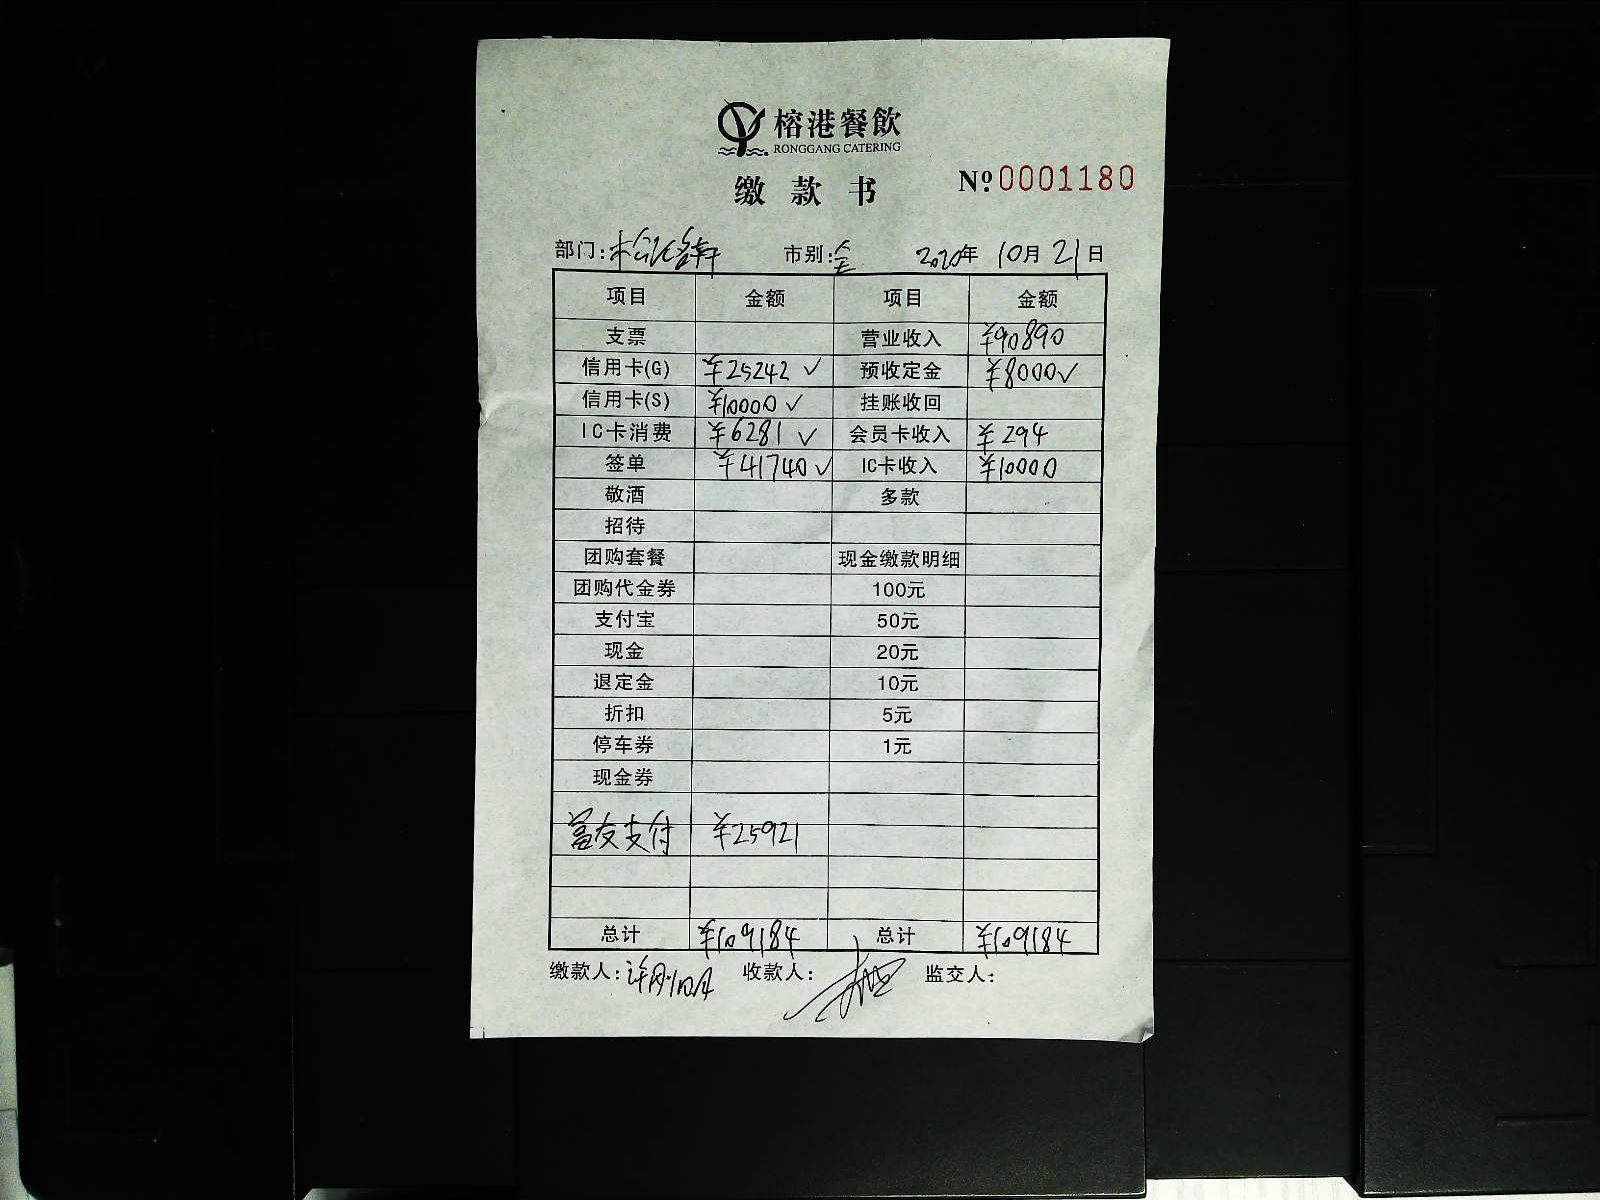 榕港餐飲
RONGGANG CATERING
缴款书
Nº 0001180
部门: 市别:全 2020年 10月 21日
项目 金额 项目 金额
支票 营业收入 ¥90890
信用卡(G) ¥25242 ✓ 预收定金 ¥8000 ✓
信用卡(S) ¥10000 ✓ 挂账收回
IC卡消费 ¥6281 ✓ 会员卡收入 ¥294
签单 ¥41740 ✓ IC卡收入 ¥10000
敬酒 多款
招待
团购套餐 现金缴款明细
团购代金券 100元
支付宝 50元
现金 20元
退定金 10元
折扣 5元
停车券 1元
现金券
富友支付 ¥25921
总计 ¥109184 总计 ¥109184
缴款人: 收款人: 监交人: